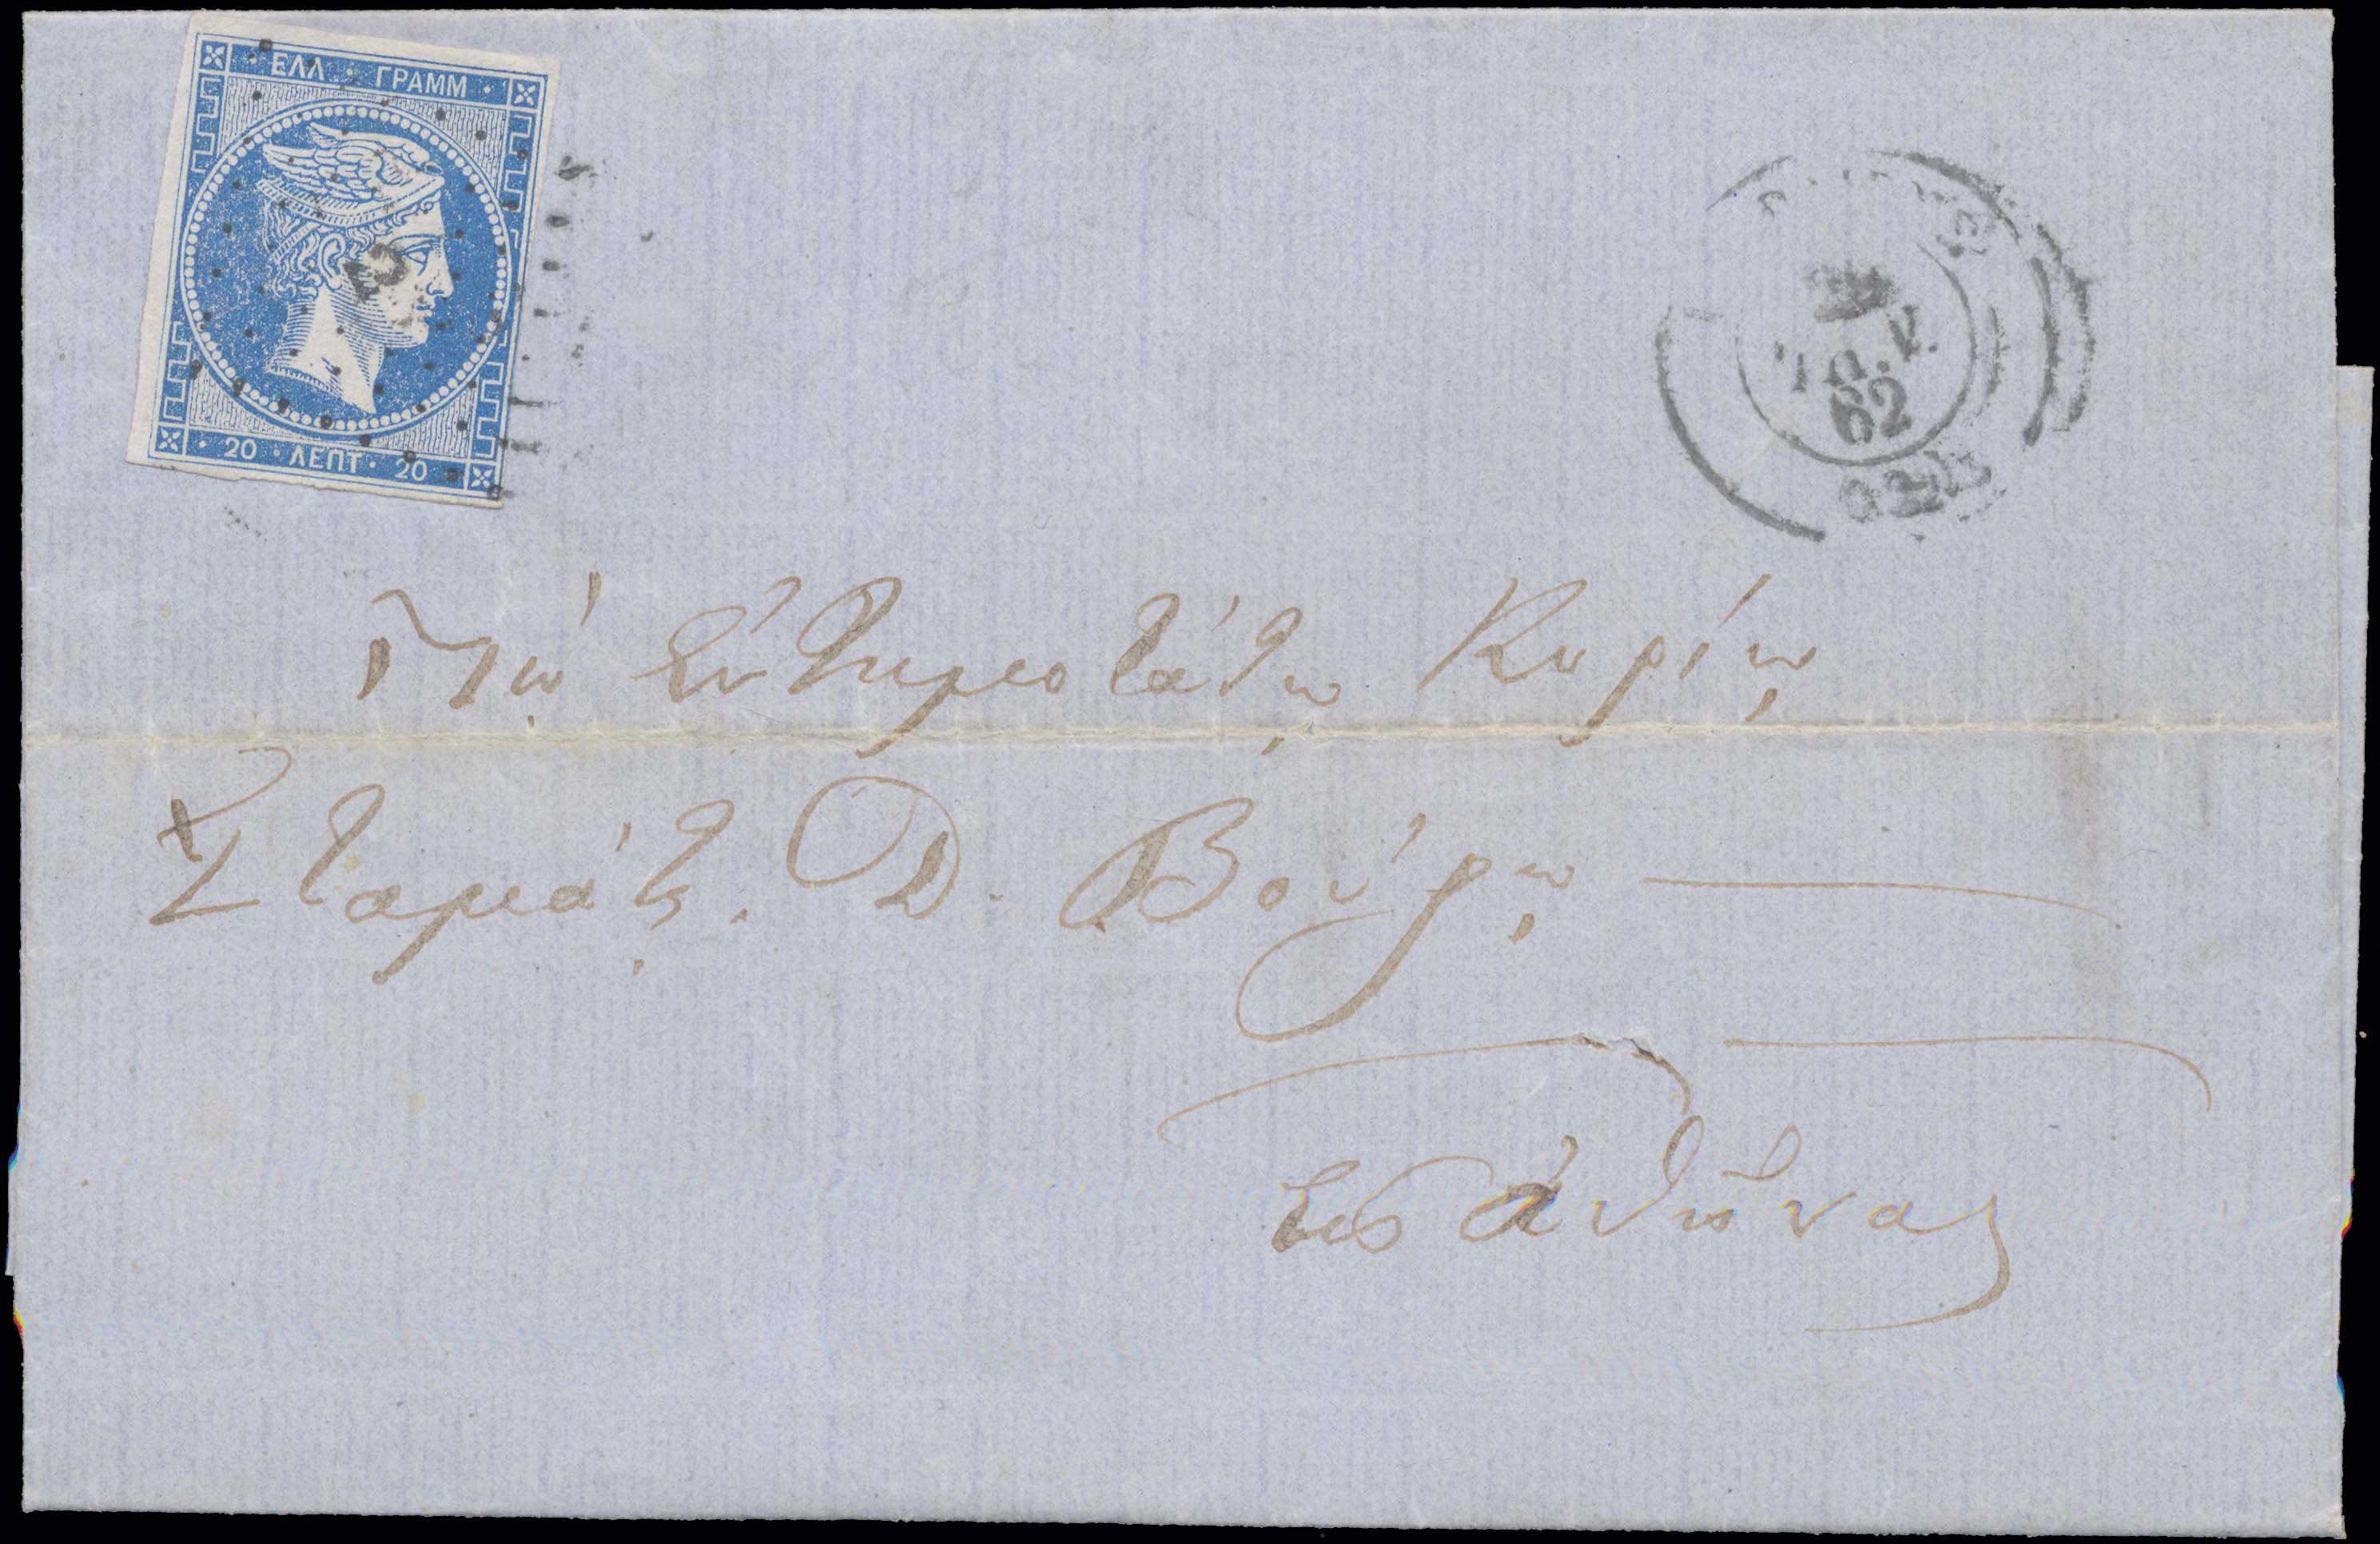 ΕΛΛ · ΓΡΑΜΜ ·
· 20 · ΛΕΠΤ · 20
62
Τῷ Εὐτιμοτάτῳ Κυρίῳ
Σταμάτ. Δ. Βούρῳ
Εἰς Ἀθήνας